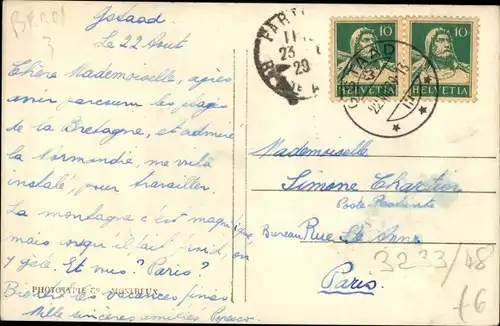 Gstaad
Le 22 Août
Chère Mademoiselle, après
avoir parcouru les plages
de la Bretagne, et admiré
la Normandie, me voilà
installé, pour travailler.
La montagne c'est magnifique,
mais qu'il fait froid, on
y gèle. Et vous? Paris?
Bientôt les vacances finies
Mille sincères amitiés Popesco
PHOTOTYPIE Co. MONTREUX
PARI
23
29
GSTAAD
10
HELVETIA
10
HELVETIA
Mademoiselle
Simone Chartier
Poste Restante
Bureau Rue Ste Anne
Paris
3233/48
£6